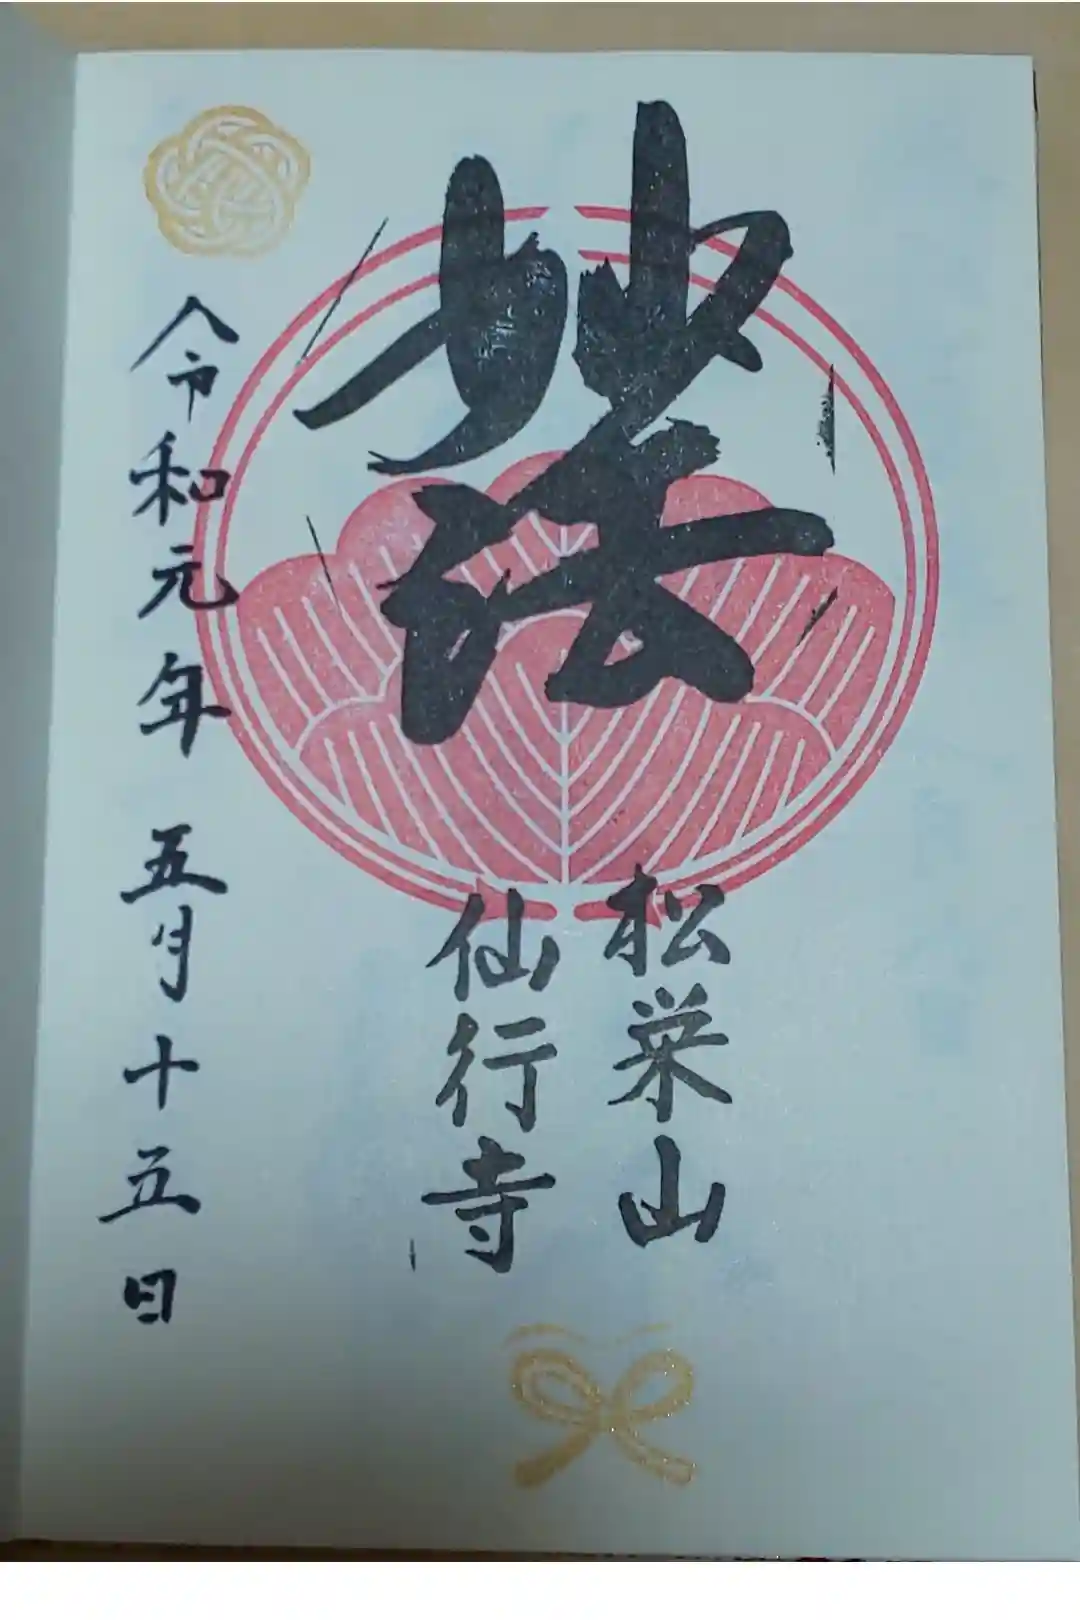 妙法
松栄山
仙行寺
令和元年 五月十五日